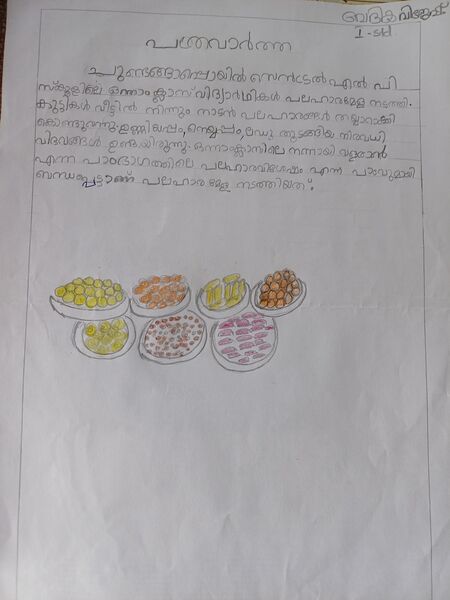 ബദ്രിക വിജേഷ്
I-std
പത്രവാർത്ത
ചുണ്ടങ്ങാപ്പൊയിൽ സെൻട്രൽ എൽ പി
സ്കൂളിലെ ഒന്നാം ക്ലാസ് വിദ്യാർഥികൾ പലഹാരമേള നടത്തി.
കുട്ടികൾ വീട്ടിൽ നിന്നും നാടൻ പലഹാരങ്ങൾ തയ്യാറാക്കി
കൊണ്ടുവന്നു. ഉണ്ണിയപ്പം, നെയ്യപ്പം, ലഡു തുടങ്ങിയ നിരവധി
വിഭവങ്ങൾ ഉണ്ടായിരുന്നു. ഒന്നാംക്ലാസിലെ നന്നായി വളരാൻ
എന്ന പാഠഭാഗത്തിലെ പലഹാരവിശേഷം എന്ന പാഠവുമായി
ബന്ധപ്പെട്ടാണ് പലഹാര മേള നടത്തിയത്.